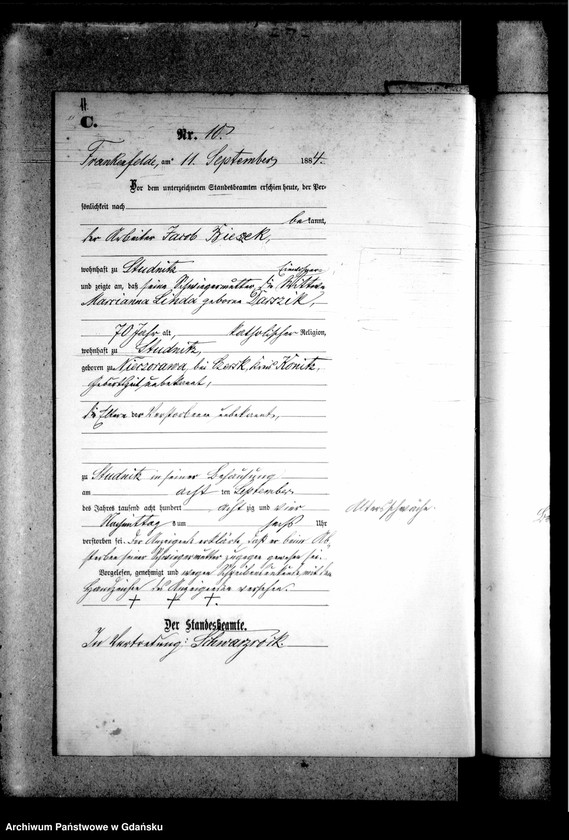 C.
Nr. 10.
Frankenfelde, am 11. September 1884.
Vor dem unterzeichneten Standesbeamten erschien heute, der Per-
sönlichkeit nach
bekannt,
der Arbeiter Jacob
wohnhaft zu Studnitz
und zeigte an, daß seine Schwiegermutter, die Wittwe
Marrianna Linda geborene Darszik,
70 Jahr alt, katholischer Religion,
wohnhaft zu Studnitz,
geboren zu bei Czersk, Kreis Konitz,
unbekannt,
die Eltern der Verstorbenen unbekannt,
zu Studnitz in seiner Behausung
am acht ten September
des Jahres tausend acht hundert acht zig und vier
Nachmittag um sechs Uhr
verstorben sei. Der Anzeigende erklärte, daß er beim Ab-
sterben seiner Schwiegermutter zugegen gewesen sei.
Vorgelesen, genehmigt und wegen Schreibensunkunde mit den
Handzeichen des Anzeigenden versehen.
+ + +.
Der Standesbeamte.
In Vertretung: Schwarzrock.
Altersschwäche.
Archiwum Państwowe w Gdańsku